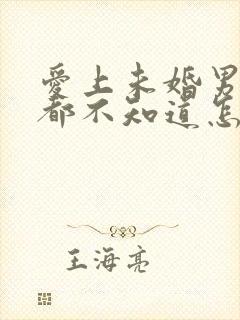 爱上未婚男
都不知道怎
王海亮